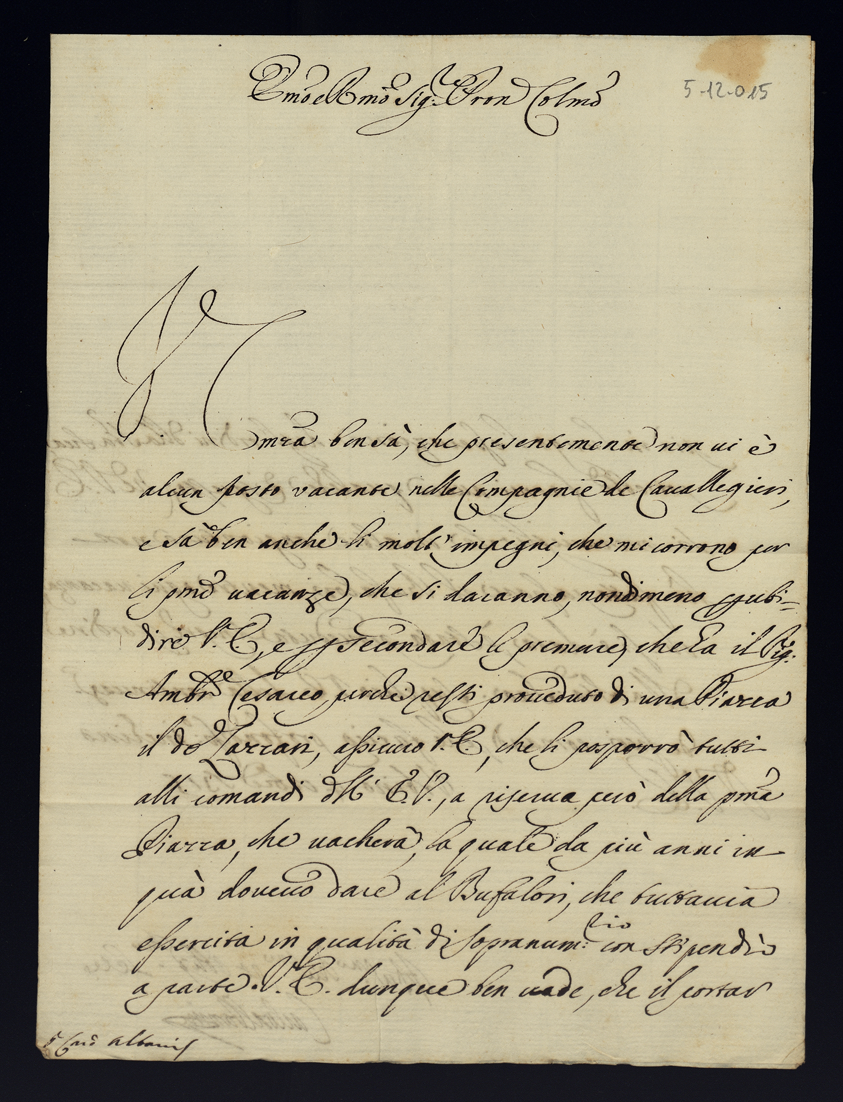 Emo e Rmo Sig.r Pron Colmo
5-12-015
V. Emza ben sà, che presentemente non vi è
alcun posto vacante nelle Compagnie de Cavalleggieri,
e sà ben anche li molti impegni, che mi corrono per
li pmè vacanze, che si daranno, nondimeno per ubi=
dire V. E., e per secondare le premure, che hà il Sig.
Ambre Cesareo, perche resti proveduto di una Piazza
il de Zazzari, assicuro V. E., che li posporrò tutti
alli comandi dell' E. V., a riserva però della pma
Piazza, che vacherà, la quale da più anni in
quà dovevo dare al Bufalori, che tuttavia
essercita in qualità di sopranum:rio con stipendio
a parte. V. E. dunque ben vede, che il portar
Sr Card Albani